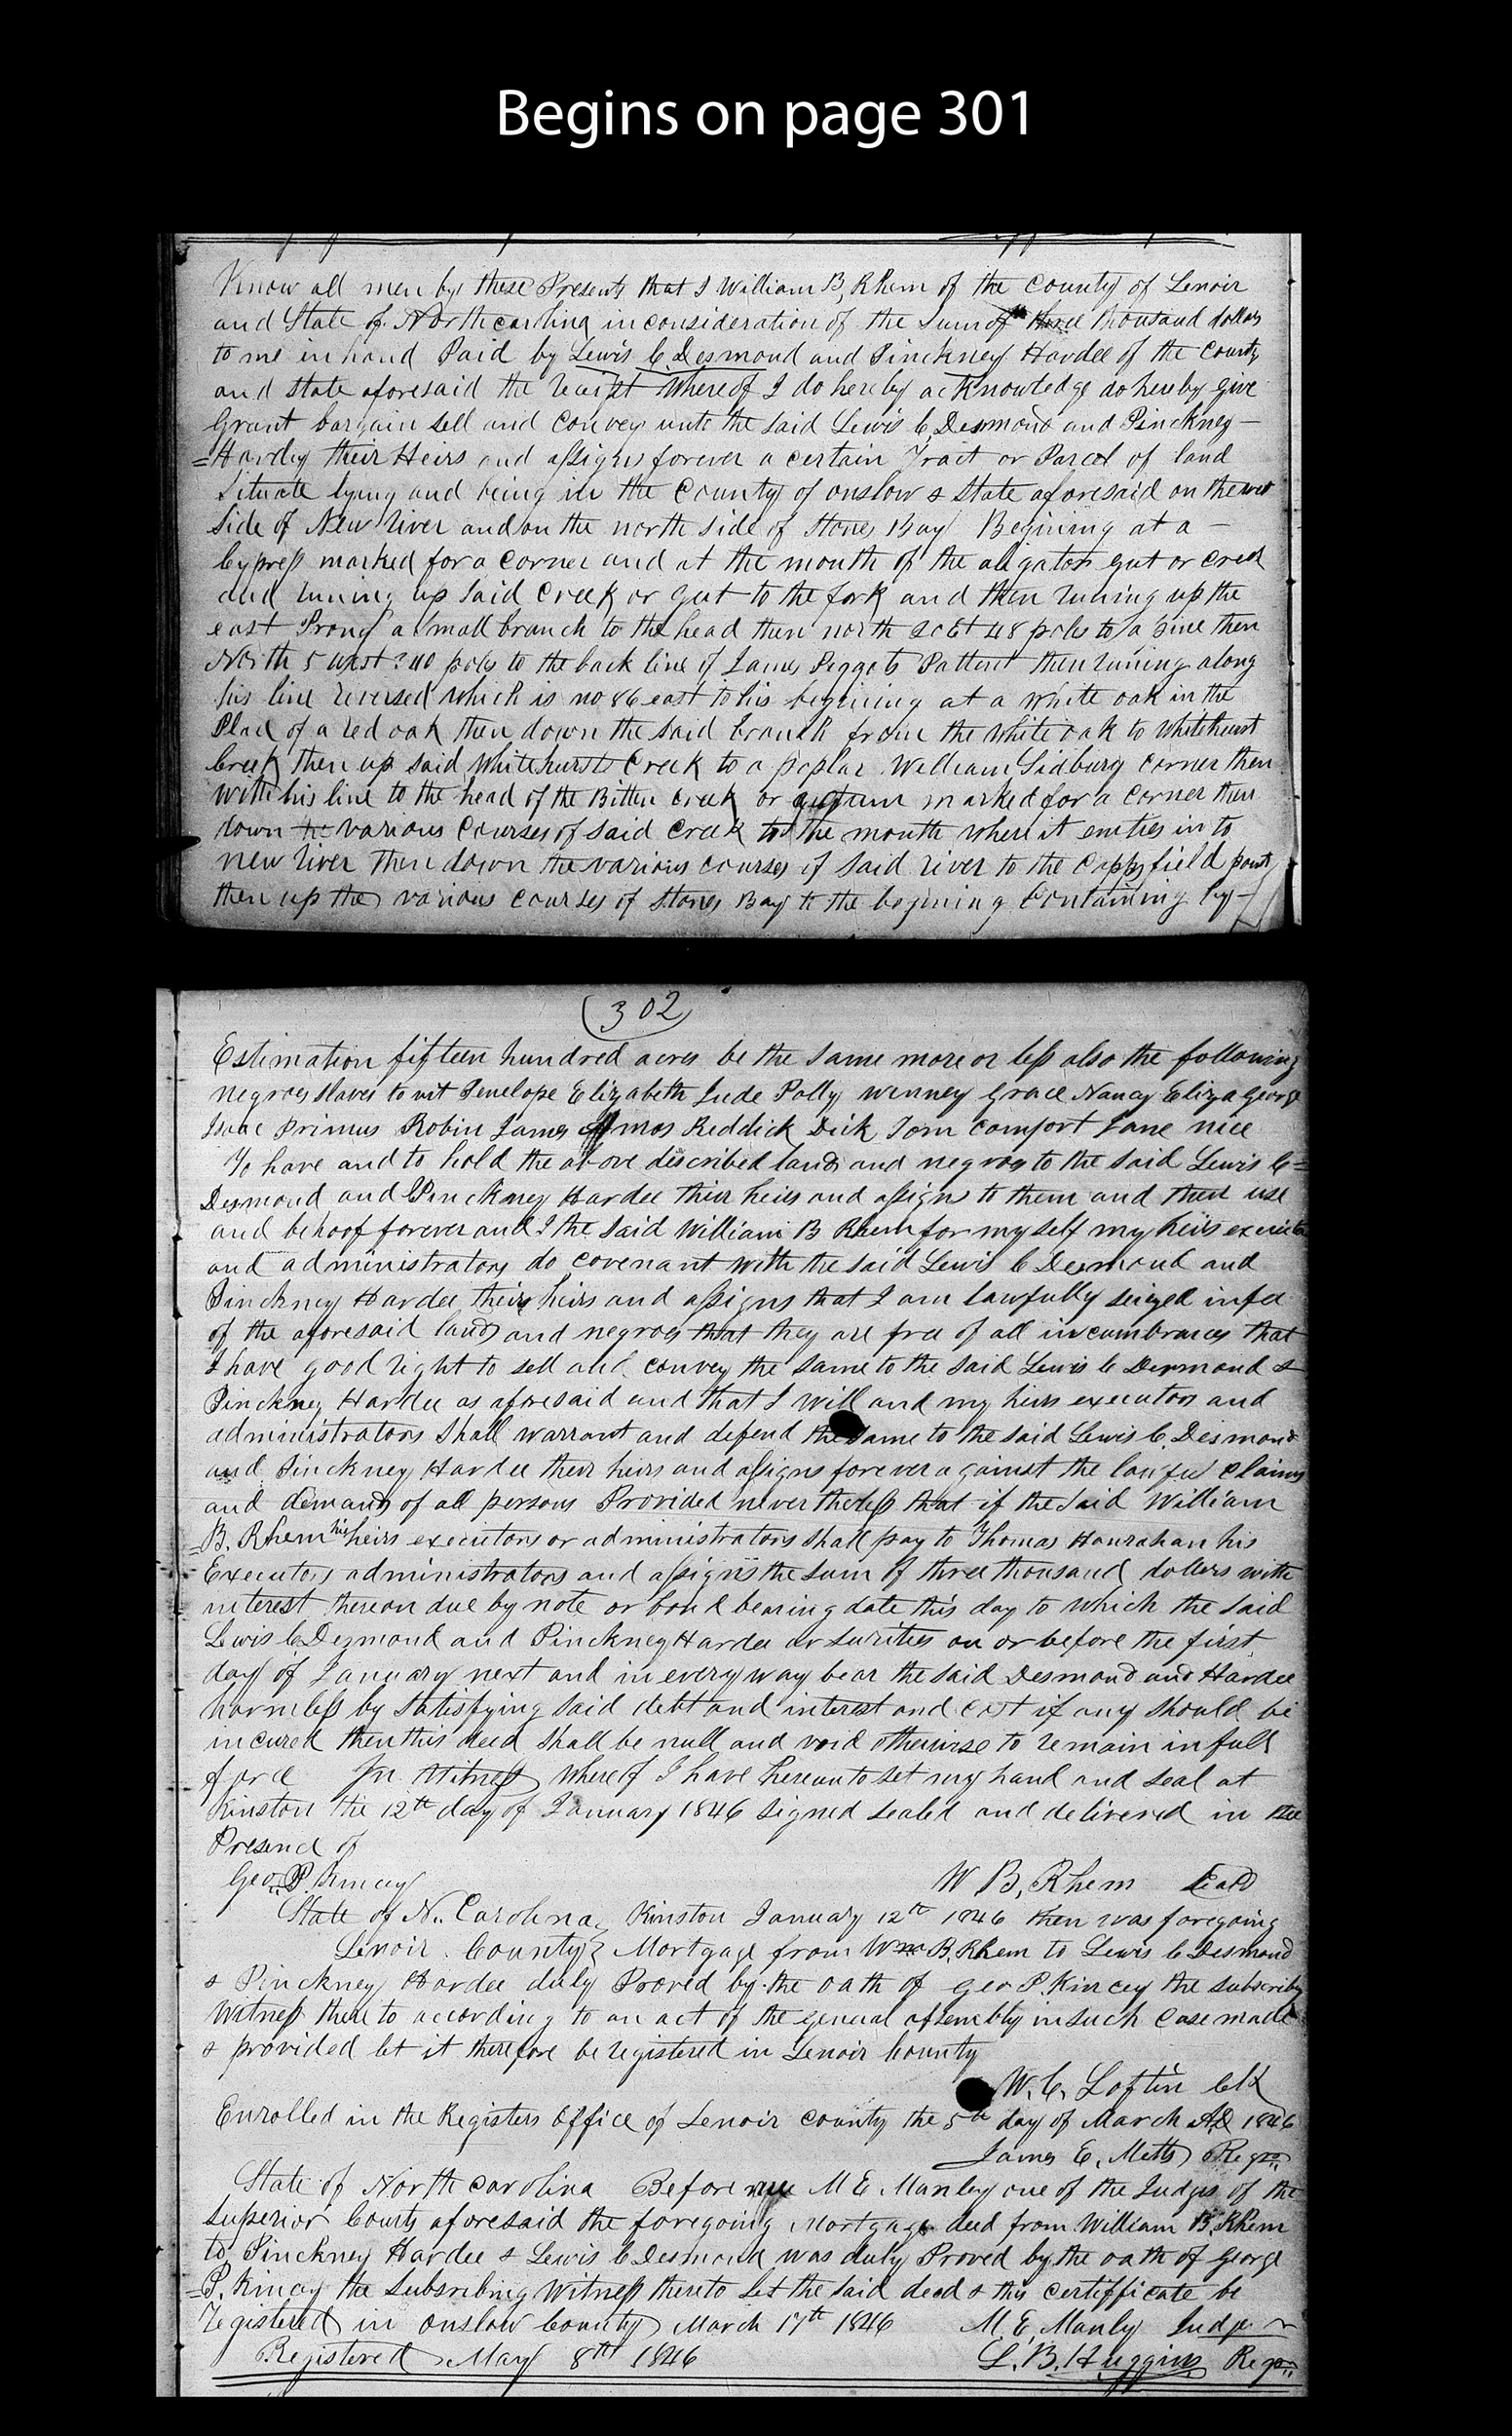 Begins on page 301
Know all men by these Presents that I William B, Rhem of the County of Lenoir
and State of Northcarlina in consideration of the Sum of three thousand dollars
to me in hand Paid by Lewis C. Desmond and Pinckney Hardee of the County
and state aforesaid the receipt whereof I do hereby acknowledge do hereby give
Grant bargain sell and convey unto the said Lewis C, Desmond and Pinckney –
=Hardey their Heirs and assigns forever a certain Tract or Parcel of land
Situate lying and being in the County of onslow & State aforesaid on the west
Side of New River and on the north side of Stones Bay Begining at a –
Cypress marked for a corner and at the mouth of the aligators gut or creek
and runing up said Creek or gut to the fork and then runing up the
east Prong a small branch to the head then north 48 poles to a pine then
North 5 west poles to the back line of James Piggots Pattent then runing along
his line reversed which is no 86 east to his begining at a white oak in the
Place of a red oak then down the said branch from the white oak to Whitehurst
Creek then up said Whitehursts Creek to a poplar William Sidbury corner then
with his line to the head of the Bitten creek or marked for a corner then
down the various Courses of said Creek to the mouth where it emties in to
new river then down the various courses of said river to the Coppsfield point
then up the various courses of Stones Bay to the begining Containing by –
(302)
Estimation fifteen hundred acres be the same more or less also the following
negroes slaves to wit Penelope Elizabeth Jude Polly Winney Grace Nancy Eliza George
Isaac Primus Robin James Amos Reddick Dick Tom Comfort Jane nice
To have and to hold the above discribed lands and negroes to the said Lewis C=
Desmond and Pinckney Hardee their heirs and assigns to them and their use
and behoof forever and I the said William B Rhem for my self my heirs executors
and administrators do covenant with the said Lewis C Desmond and
Pinckney Hardee, their heirs and assigns that I am lawfully seized in fee
of the aforesaid lands and negroes that they are free of all incumbrances that
I have good right to sell and convey the same to the said Lewis C Desmond &
Pinckney Hardee as aforesaid and that I will and my heirs executors and
administrators shall warrant and defend the same to the said Lewis C. Desmond
and Pinckney Hardee their heirs and assigns forever against the lawful claims
and demands of all persons Provided never theless that if the said William
=B. Rhem his heirs executors or administrators shall pay to Thomas Hanrahan his
Executors administrators and assigns the sum of three thousand dollars with
interest thereon due by note or bond bearing date this day to which the said
Lewis C Desmond and Pinckney Hardee ar surities on or before the first
day of January next and in every way bear the said Desmond and Hardee
harmless by satisfying said debt and interest and cost if any should be
incured then this deed shall be null and void otherwise to remain in full
force In Witness whereof I have hereunto set my hand and seal at
Kinston the 12th day of January 1846 signed sealed and delivered in the
Presence of
Geo. P. Kincey W B, Rhem Seal
State of N. Carolina, Kinston January 12th 1846 then was foregoing
Lenoir County } Mortgage from Wm B. Rhem to Lewis C Desmond
& Pinckney Hardee duly Proved by the oath of Geo P. Kincey the subscribing
Witness there to according to an act of the general assembly in such case made
& provided let it therefore be registered in Lenoir County
W. C. Loftin Clk
Enrolled in the Registers Office of Lenoir county the 5th day of March AD 1846
James E. Metts Regr
State of North Carolina Before me M E Manley one of the Judges of the
Superior Courts aforesaid the foregoing Mortgage deed from William B. Rhem
to Pinckney Hardee & Lewis C Desmond was duly Proved by the oath of George
=P. Kincey the Subscribing Witness thereto Let the said deed & this certifficate be
registered in onslow County March 17th 1846 M. E, Manly Judge
Registered May 8th 1846 L. B. Huggins Regr